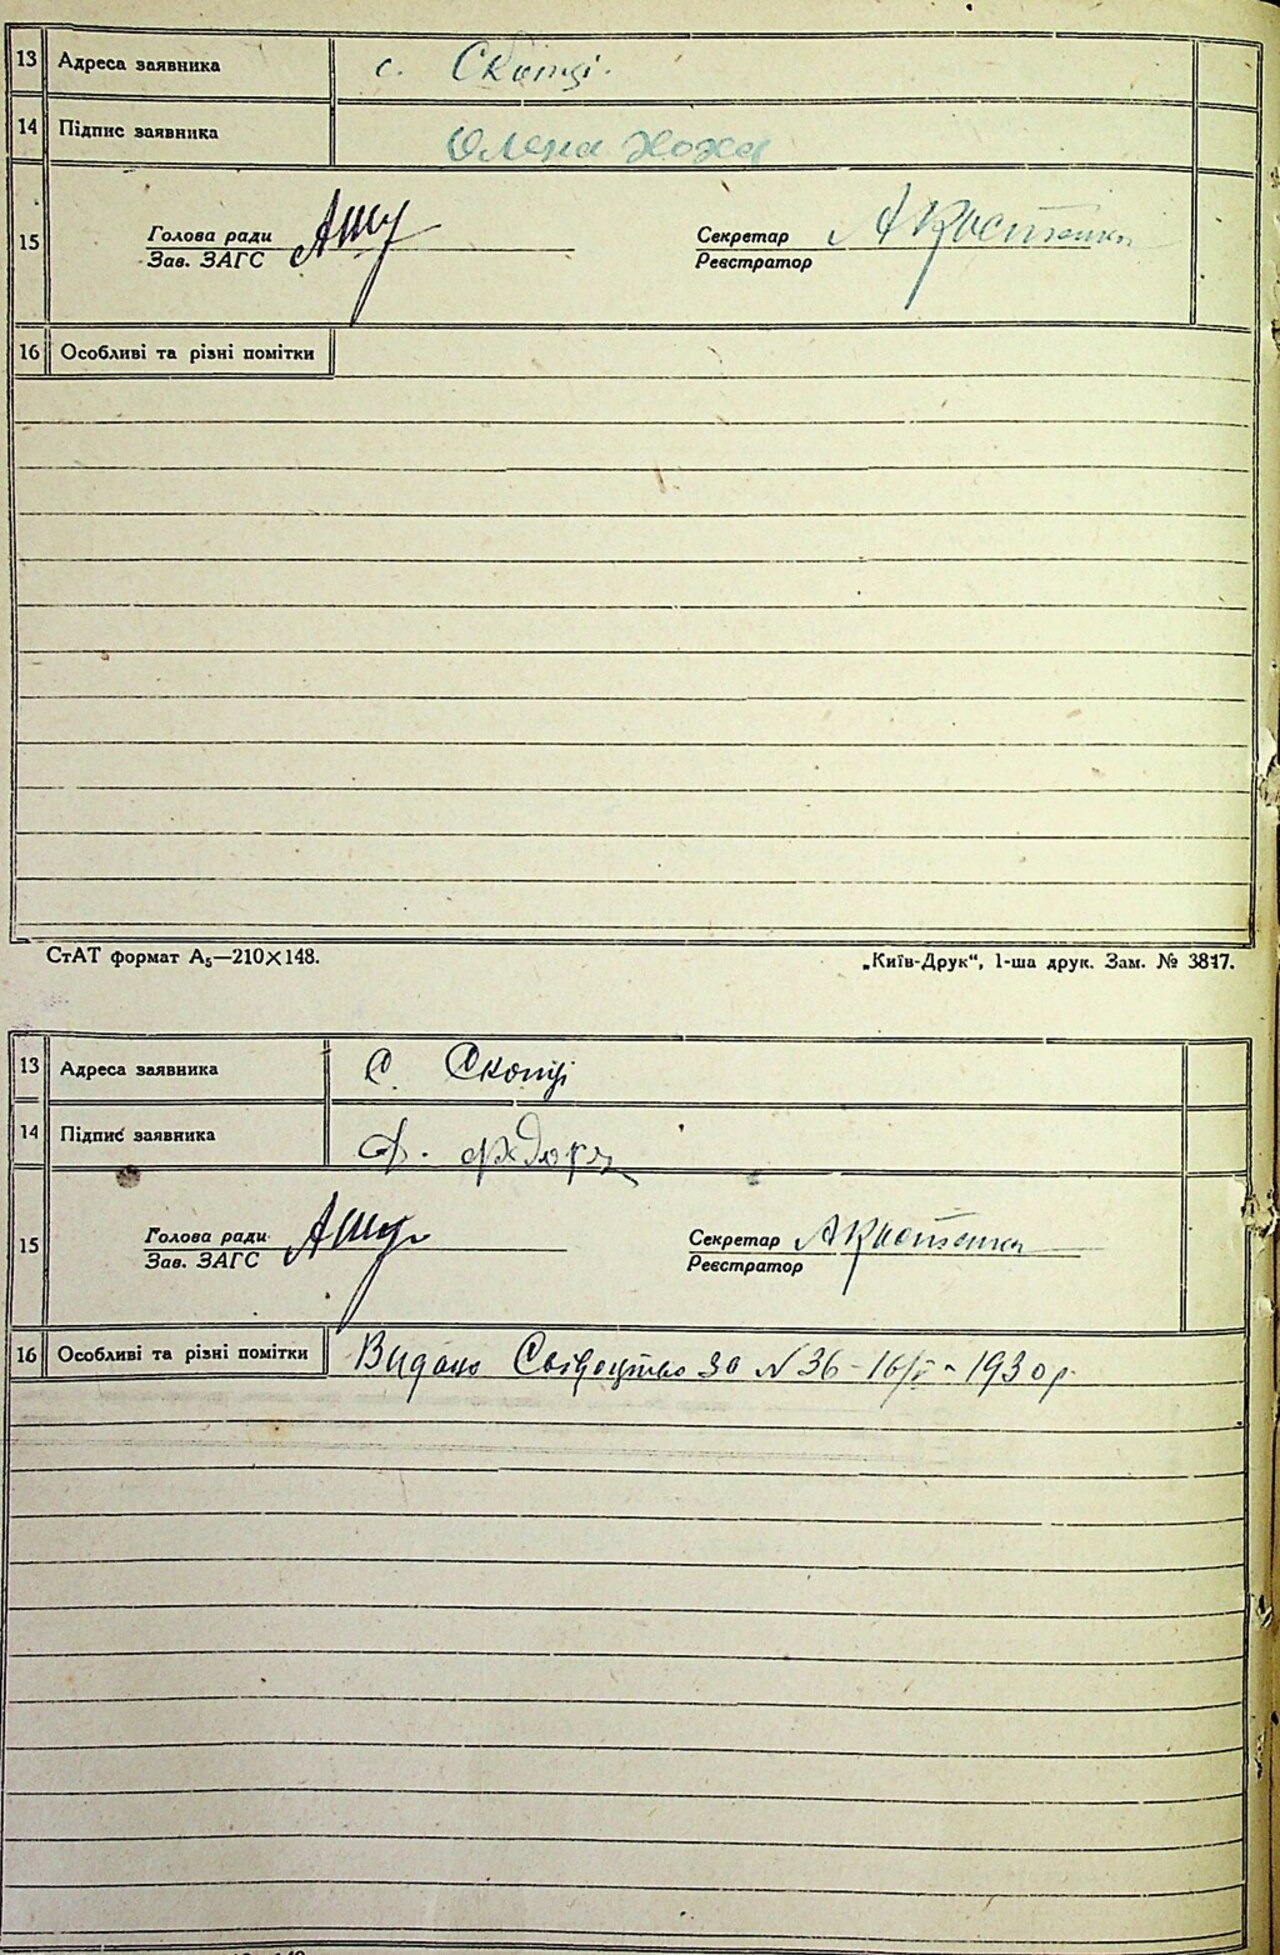 13 Адреса заявника с. Скопці.
14 Підпис заявника Олена
15 Голова ради Секретар
Зав. ЗАГС Реєстратор
16 Особливі та різні помітки
СтАТ формат А5—210×148.
„Київ-Друк“, 1-ша друк. Зам. № 3817.
13 Адреса заявника С. Скопці
14 Підпис заявника
15 Голова ради Секретар
Зав. ЗАГС Реєстратор
16 Особливі та різні помітки Видано Свідоцтво за N 36 - 1930 р.